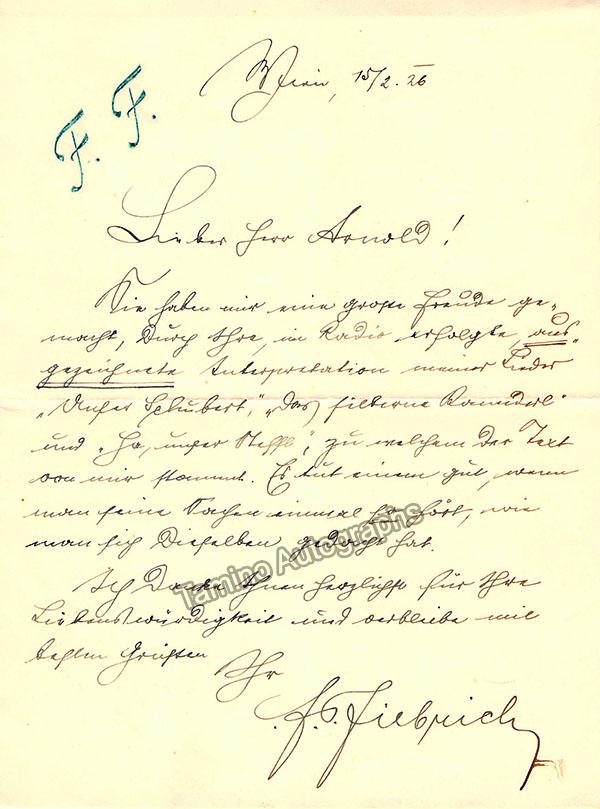 F. F.
Wien, 15/2. 26
Lieber Herr Arnold!
Sie haben mir eine große Freude ge-
macht, durch Ihre, im Radio erfolgte, aus-
gezeichnete Interpretation meiner Lieder
„Unser Schubert", „Das silberne Kanderl"
und „Ja, unser Steffl", zu welchem der Text
von mir stammt. Es tut einem gut, wenn
man seine Sachen einmal so hört, wie
man sich dieselben gedacht hat.
Tamino Autographs
Ich danke Ihnen herzlichst für Ihre
Liebenswürdigkeit und verbleibe mit
besten Grüßen
Ihr
F. P. Fiebrich